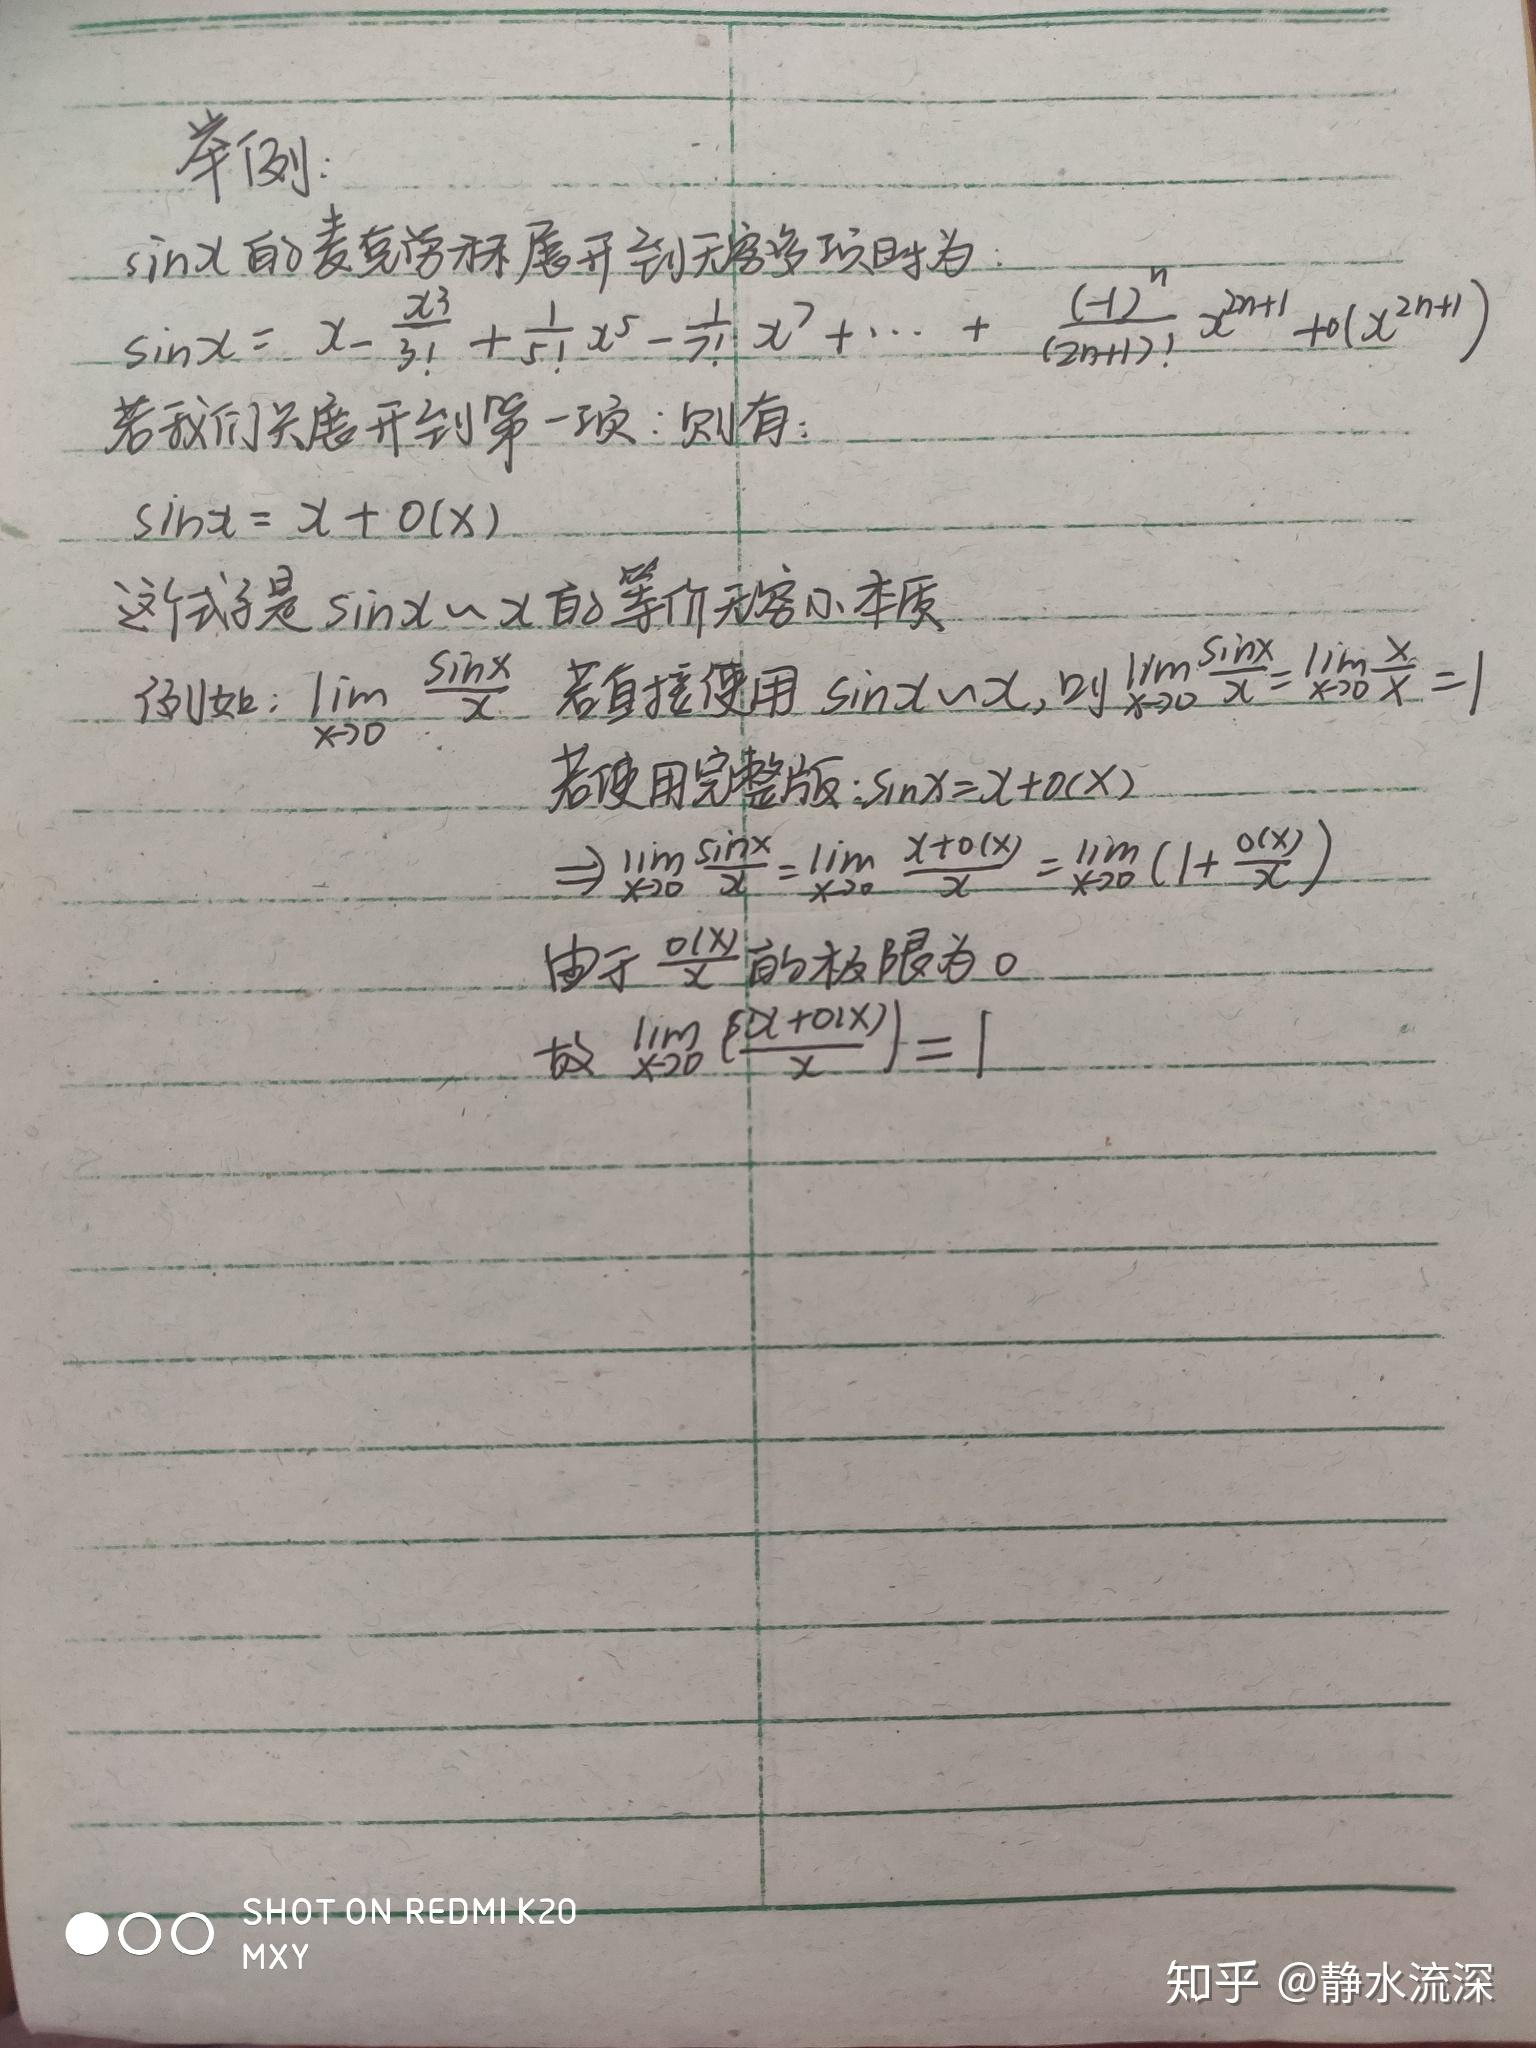 举例:
sinx的麦克劳林展开到无穷多项时为:
sinx = x - x³/3! + 1/5! x⁵ - 1/7! x⁷ + ··· + (-1)ⁿ/(2n+1)! x²ⁿ⁺¹ + o(x²ⁿ⁺¹)
若我们只展开到第一项:则有:
sinx = x + o(x)
这个式子是 sinx ~ x 的等价无穷小本质
例如: lim x→0 sinx/x 若直接使用 sinx ~ x, 则 lim x→0 sinx/x = lim x→0 x/x = 1
若使用完整版: sinx = x + o(x)
⇒ lim x→0 sinx/x = lim x→0 x+o(x)/x = lim x→0 (1 + o(x)/x)
由于 o(x)/x 的极限为 0
故 lim x→0 (x+o(x)/x) = 1
SHOT ON REDMI K20
MXY
知乎 @静水流深